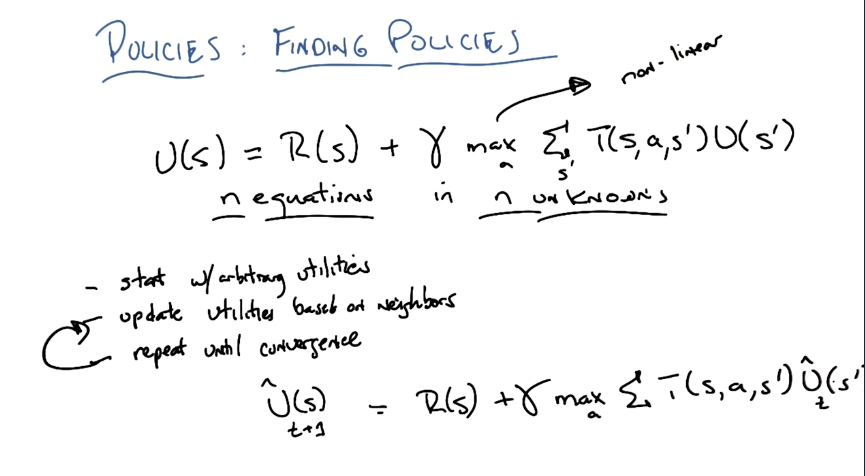 POLICIES : FINDING POLICIES
non-linear
U(s) = R(s) + γ max_a Σ_s' T(s,a,s') U(s')
n equations in n unknowns
- start w/ arbitrary utilities
- update utilities based on neighbors
- repeat until convergence
Û_{t+1}(s) = R(s) + γ max_a Σ T(s,a,s') Û_t(s'